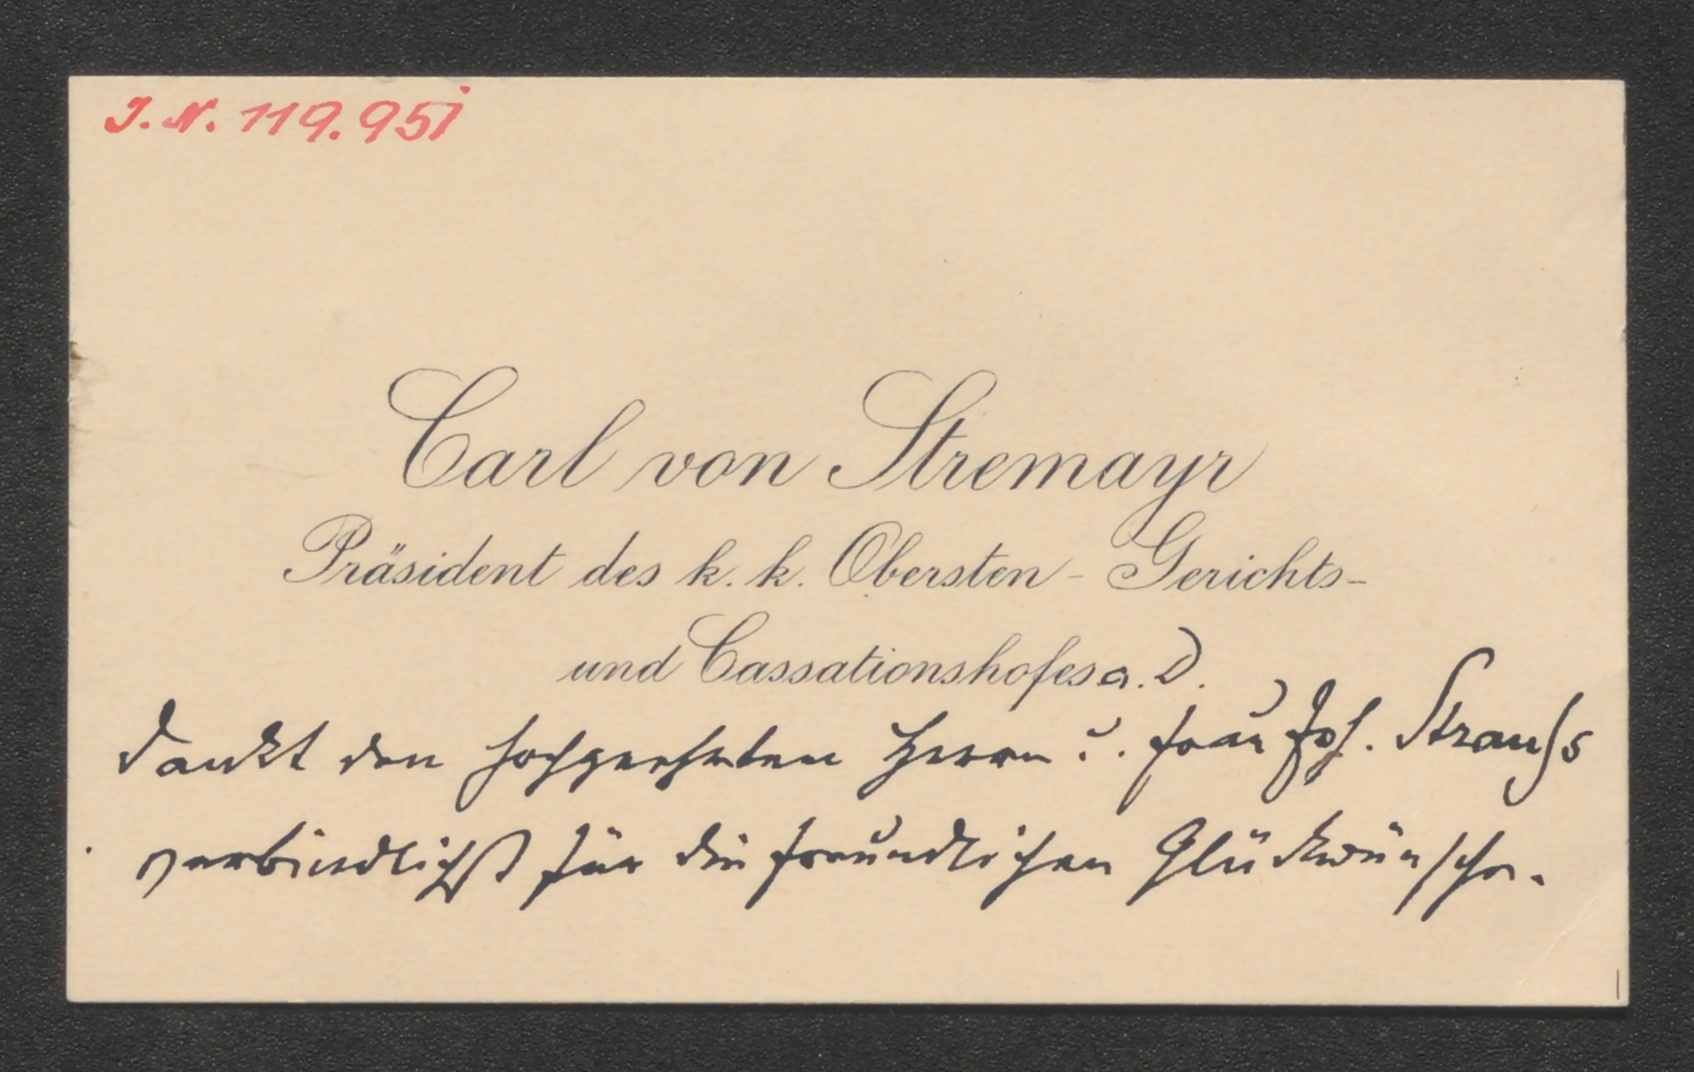 J. N. 119.951
Carl von Stremayr
Präsident des k. k. Obersten - Gerichts-
und Cassationshofes a. D.
dankt den hochgeehrten Herrn u. Frau Joh. Strauss
verbindlichst für die freundlichen Glückwünsche.